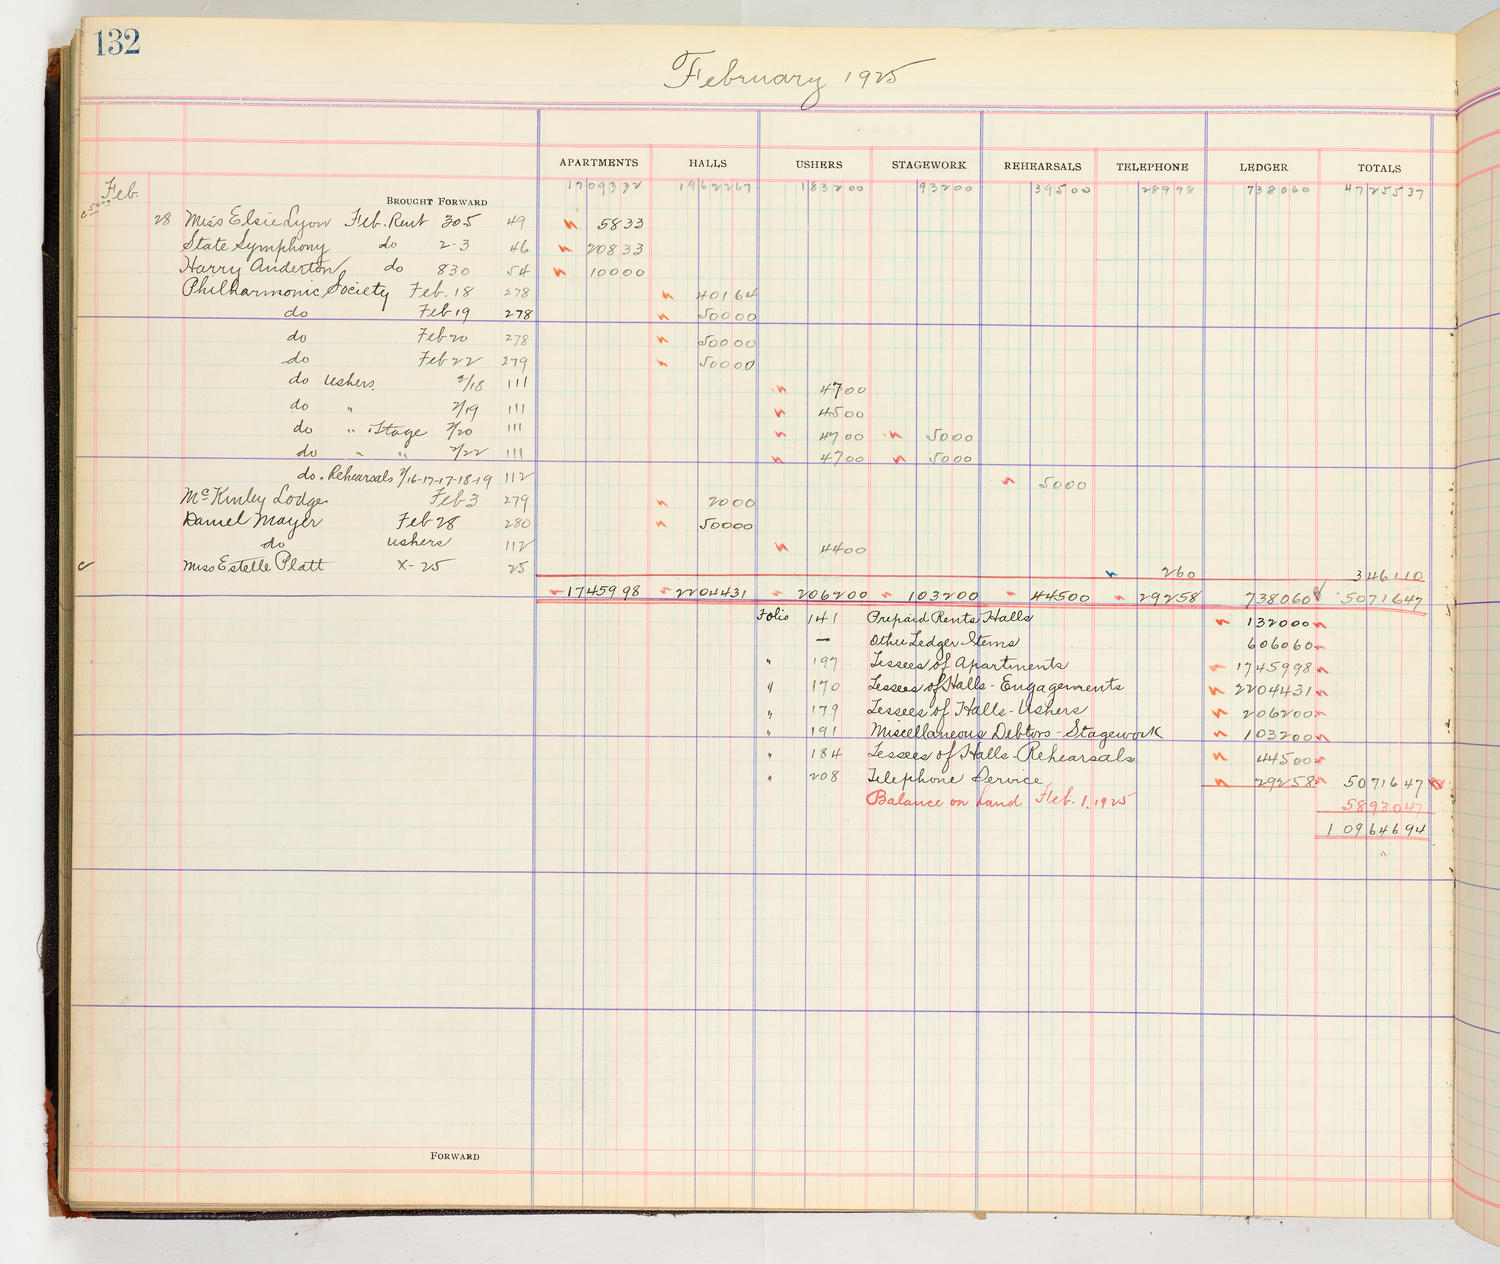 132
February 1925
APARTMENTS HALLS USHERS STAGEWORK REHEARSALS TELEPHONE LEDGER TOTALS
Feb. BROUGHT FORWARD 1709332 1962267 183200 93200 39500 28998 738060 4725537
28 Miss Elsie Lyon Feb. Rent 305 49 5833
State Symphony do 2-3 46 20833
Harry Anderton do 830 54 10000
Philharmonic Society Feb. 18 278 40164
do Feb 19 278 50000
do Feb 20 278 50000
do Feb 22 279 50000
do Ushers 2/18 111 4700
do " 2/19 111 4500
do " Stage 2/20 111 4700 5000
do " " 2/22 111 4700 5000
do. Rehearsals 2/16-17-17-18-19 112 5000
McKinley Lodge Feb 3 279 2000
Daniel Mayer Feb 28 280 50000
do ushers 112 4400
Miss Estelle Platt X-25 25 260 346110
1745998 2204431 206200 103200 44500 29258 738060 5071647
Folio 141 Prepaid Rents Halls 132000
— Other Ledger Items 606060
" 197 Lessees of Apartments 1745998
" 170 Lessees of Halls - Engagements 2204431
" 179 Lessees of Halls - Ushers 206200
" 191 Miscellaneous Debtors - Stagework 103200
" 184 Lessees of Halls - Rehearsals 44500
" 208 Telephone Service 29258 5071647
Balance on hand Feb. 1, 1925 5893047
10964694
FORWARD